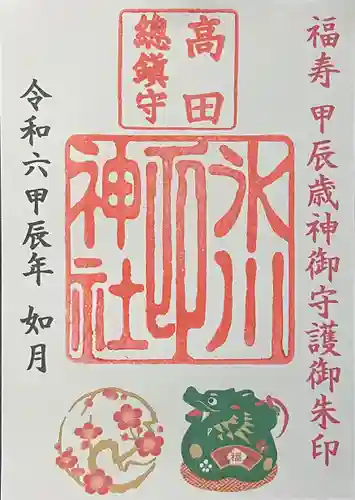 福寿 甲辰歳神御守護御朱印
高田
總鎮守
氷川
神社
令和六甲辰年 如月
福